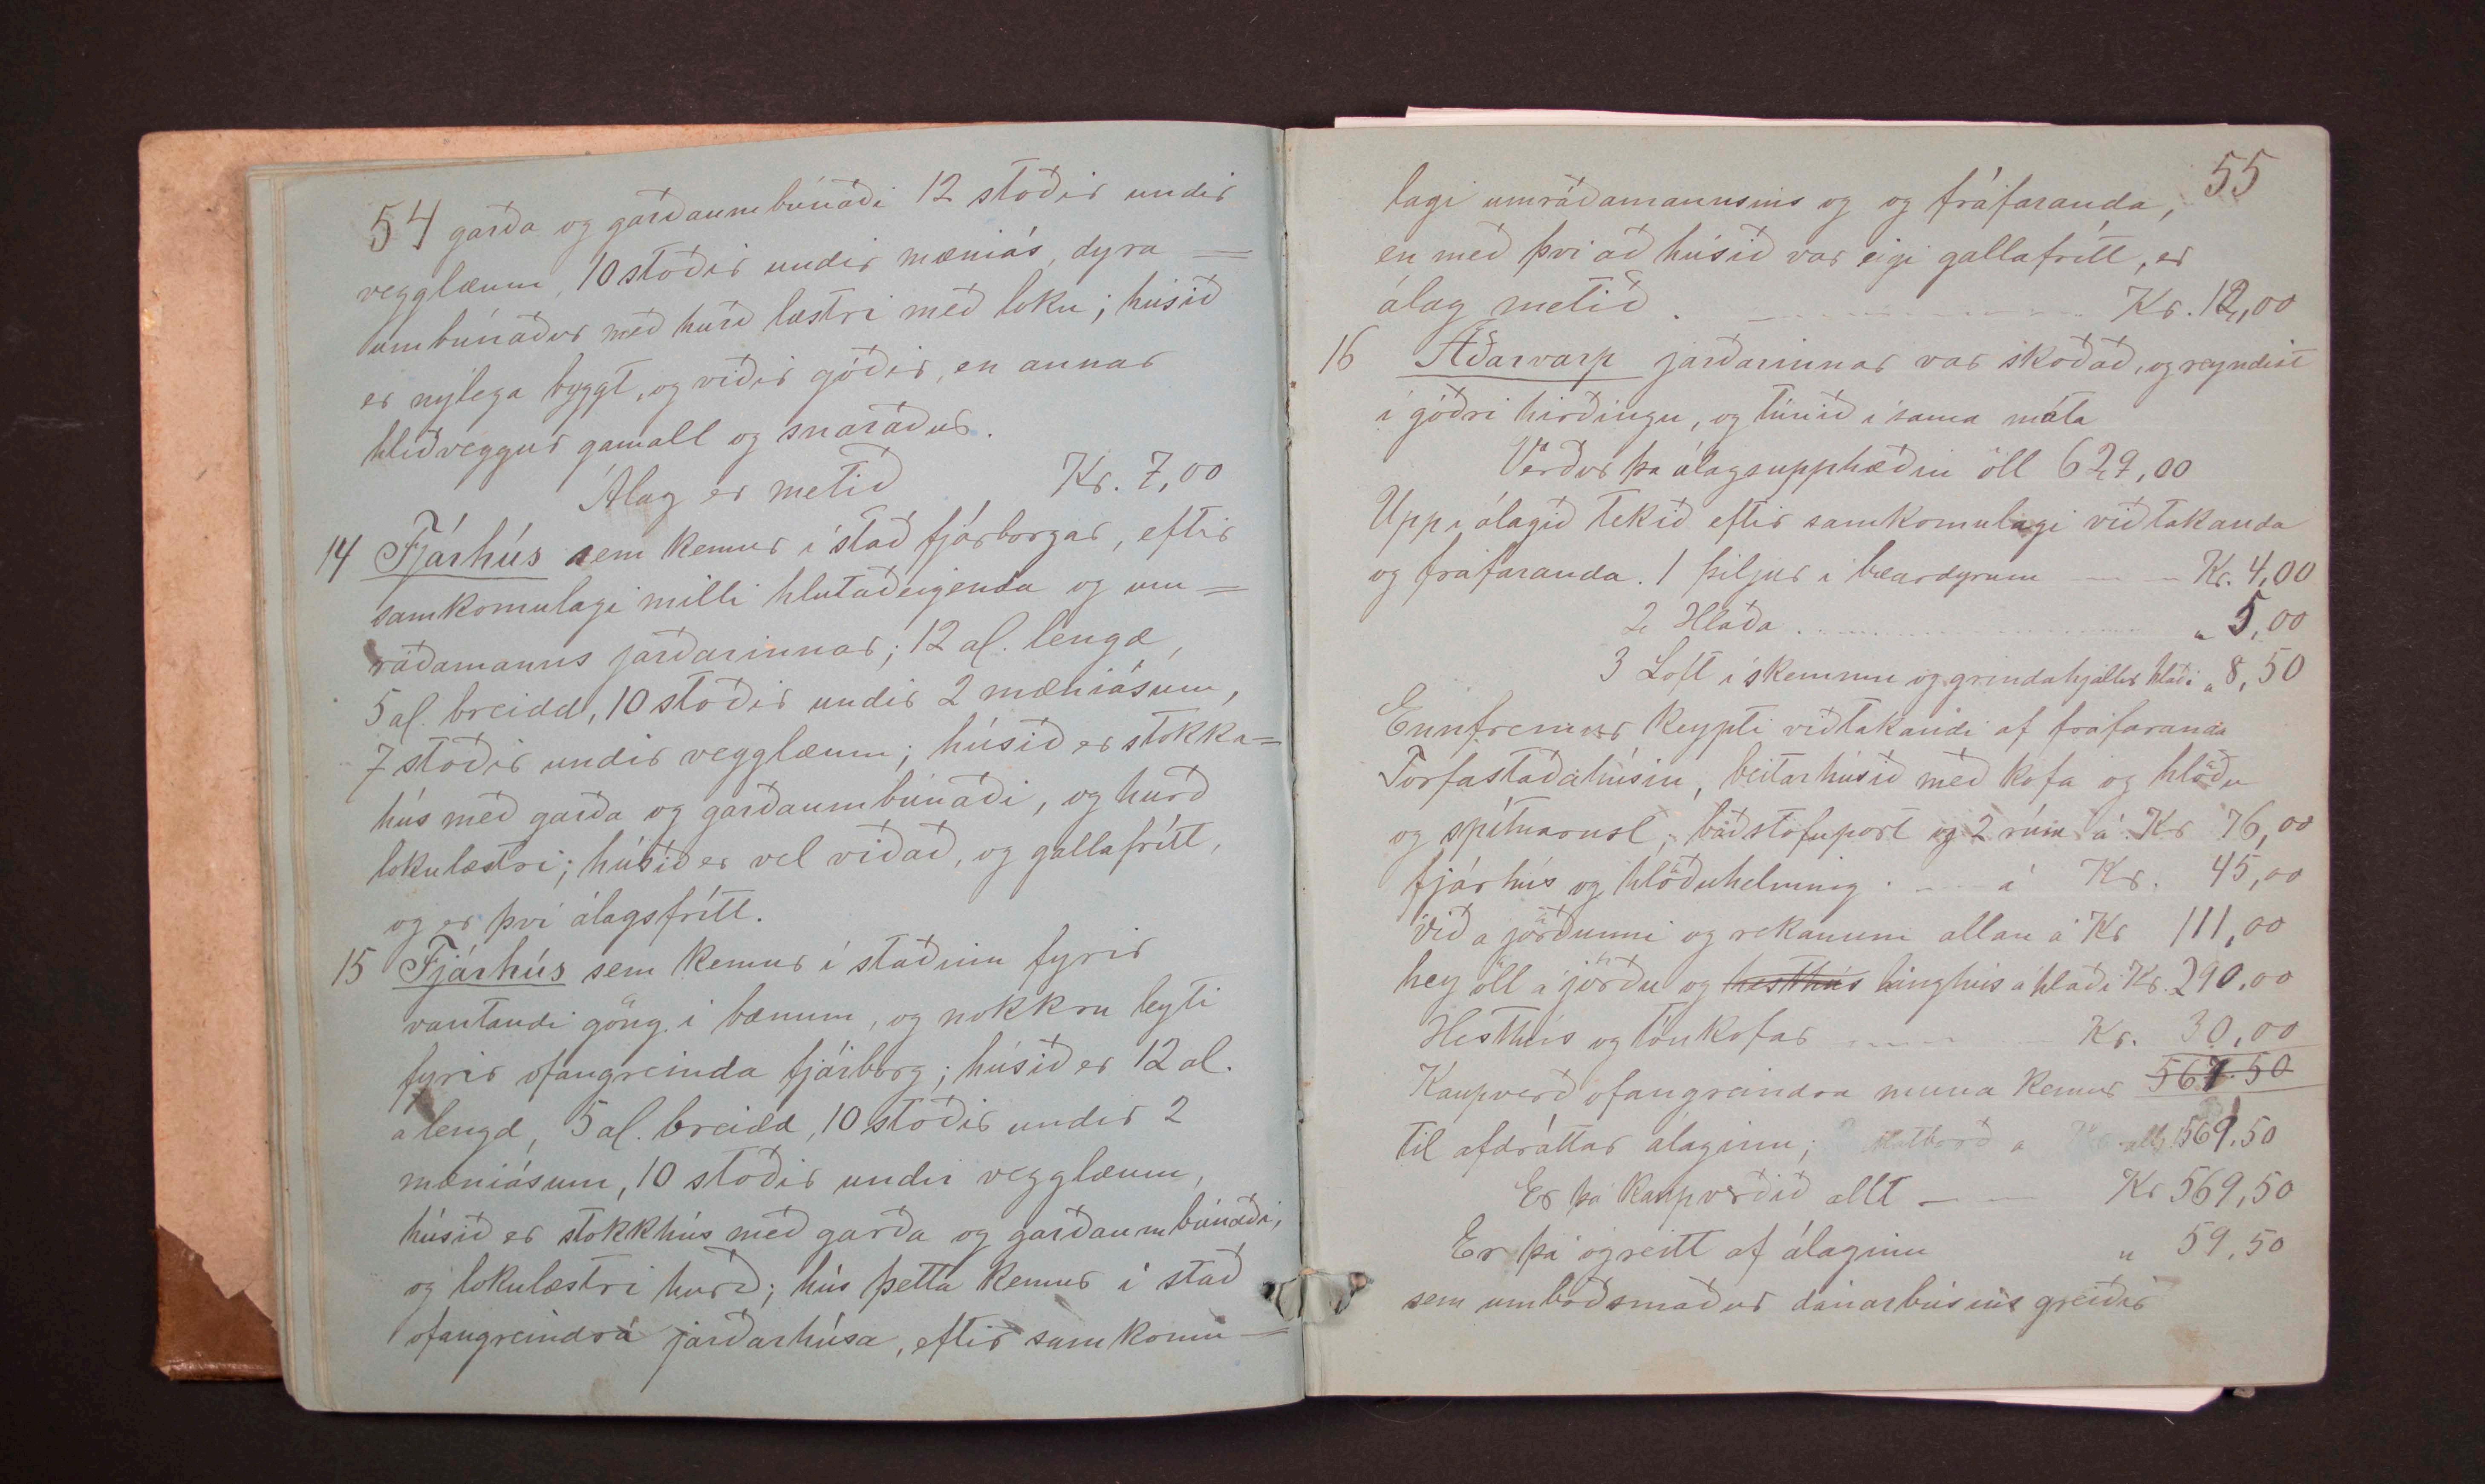 54 garða og garðaumbúnaði 12 stoðir undir
vegglæum, 10 stoðir undir mæniás, dyra=
umbúnaður með hurð læstri með loku; húsið
er nýlega byggt, og viðir góðir, en annar
hliðveggur gamall og snaraður.
Álag er metið Kr. 7,00
14 Fjárhús sem kemur í stað fjárborgar, eftir
samkomulagi milli hlutaðeigenda og um=
ráðamanns jarðarinnar; 12 al. lengd,
5 al. breidd, 10 stoðir undir 2 mæniásum,
7 stoðir undir vegglæum; húsið er stokka=
hús með garða og garðaumbúnaði, og hurð
lokulæstri; húsið er vel viðað, og gallafrítt,
og er því álagsfrítt.
15 Fjárhús sem kemur í staðinn fyrir
vantandi göng í bænum, og nokkru leyti
fyrir ofangreinda fjárborg; húsið er 12 al.
a lengd, 5 al. breidd, 10 stoðir undir 2
mæniásum, 10 stoðir undir vegglæum,
húsið er stokkhús með garða og garðaumbúnaði,
og lokulæstri hurð; hús þetta kemur í stað
ofangreindra jarðarhúsa, eftir samkomu=
55
lagi umráðamannsins og og fráfaranda,
en með því að húsið var eigi gallafrítt, er
álag metið. Kr. 12,00
16 Æðarvarp jarðarinnar var skoðað, og reyndist
í góðri hirðingu, og túnið í sama máta
Verður þa álagsupphæðin öll 629,00
Upp í álagið tekið eftir samkomulagi viðtakanda
og fráfaranda. 1 þiljur í bæardyrum Kr. 4,00
2 Hlaða " 5,00
3 Loft í skemmu og grindahjallur hlaði " 8,50
Ennfremur keypti viðtakandi af fráfaranda
Torfastaðahúsin, beitarhúsið með kofa og hlöðu
og baðstofuport og 2 rúm á Kr 76,00
fjárhús og hlöðuhelming á Kr. 45,00
við a jörðunni og rekanum allan á Kr 111,00
hey öll á jörðu og hesthús hlaði Kr. 290,00
Hesthús og kofar Kr. 30,00
Kaupverð ofangreindra muna kemur 569.50
til afdráttar álaginu; 569.50
Er þá kaupverðið allt Kr 569,50
Er þá ógreitt af álaginu " 59,50
sem umboðsmaður dánarbúsins greiðir